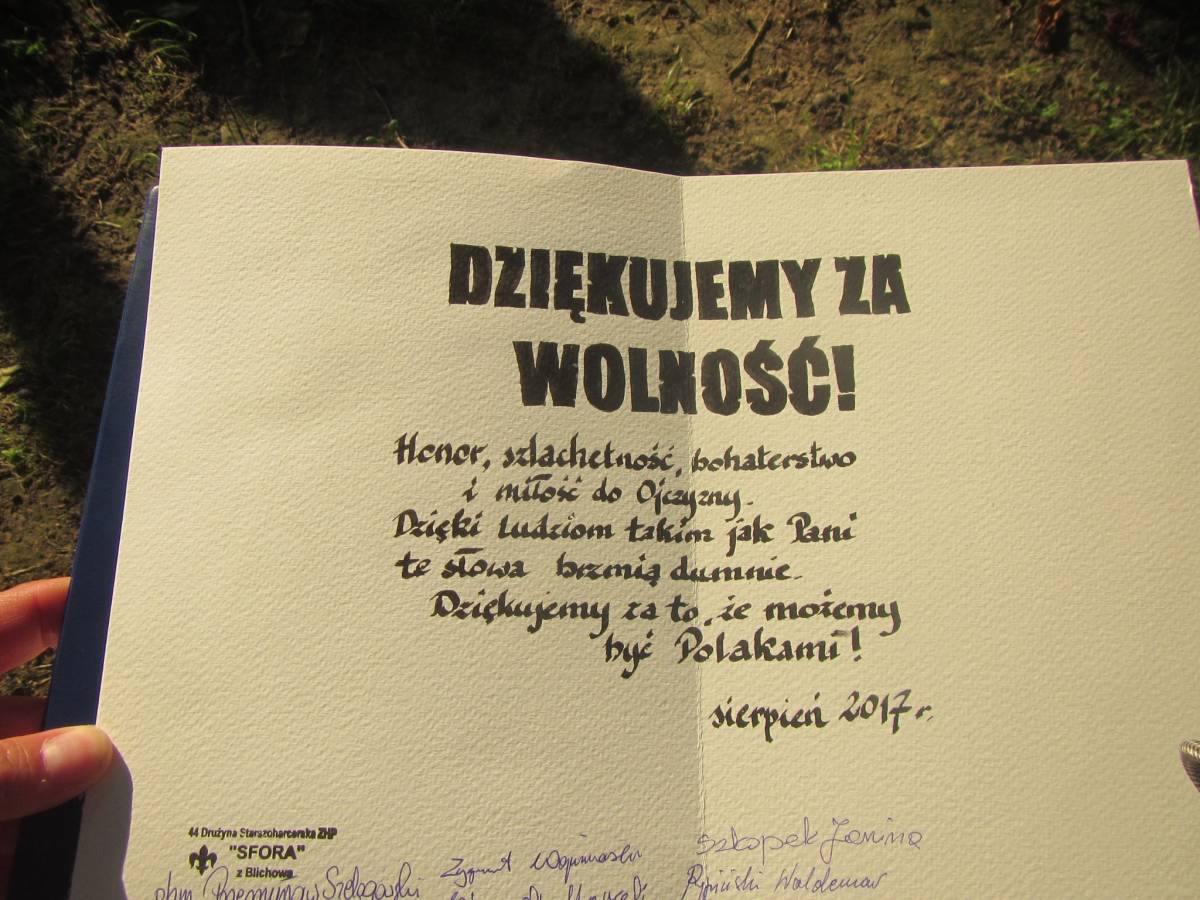 DZIĘKUJEMY ZA
WOLNOŚĆ!
Honor, szlachetność, bohaterstwo
i miłość do Ojczyzny.
Dzięki ludziom takim jak Pani
te słowa brzmią dumnie.
Dziękujemy za to, że możemy
być Polakami!
sierpień 2017 r.
44 Drużyna Starszoharcerska ZHP
"SFORA"
z Blichowa
Szkopek Janina
Zygmunt
Waldemar